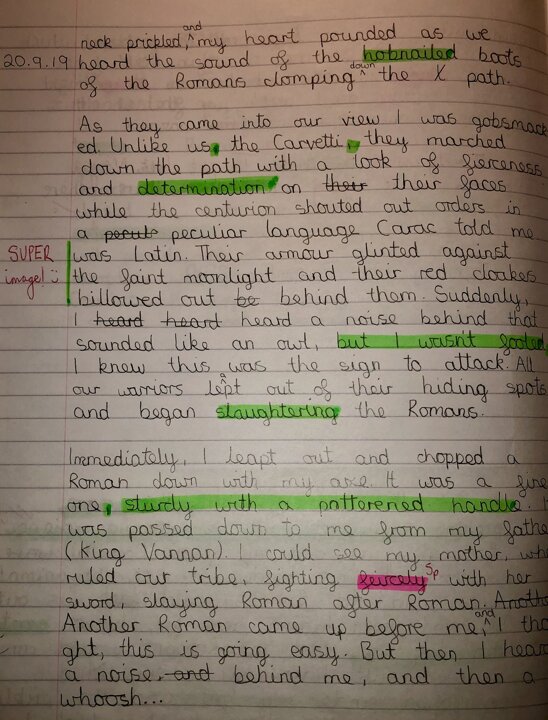 and
neck prickled, my heart pounded as we
20.9.19 heard the sound of the hobnailed boots
down
of the Romans clomping the X path.
As they came into our view I was gobsmack
ed. Unlike us, the Carvetti, they marched
down the path with a look of fierceness
and determination on their their faces
while the centurion shouted out orders in
a pecule peculiar language Carac told me
SUPER image! was Latin. Their armour glinted against
the faint moonlight and their red cloakes
billowed out be behind them. Suddenly,
I heard heard heard a noise behind that
sounded like an owl, but I wasn't fooled.
I knew this was the sign to attack. All
our warriors lept out of their hiding spots
and began slaughtering the Romans.
Immediately, I leapt out and chopped a
Roman down with my axe. It was a fine
one, sturdy with a patterened handle.
was passed down to me from my fathe
(King Vannan). I could see my mother, wh
ruled our tribe, fighting feircely Sp with her
sword, slaying Roman after Roman. Anoth
and
Another Roman came up before me, I tho
ght, this is going easy. But then I hear
a noise, and behind me, and then a
whoosh...